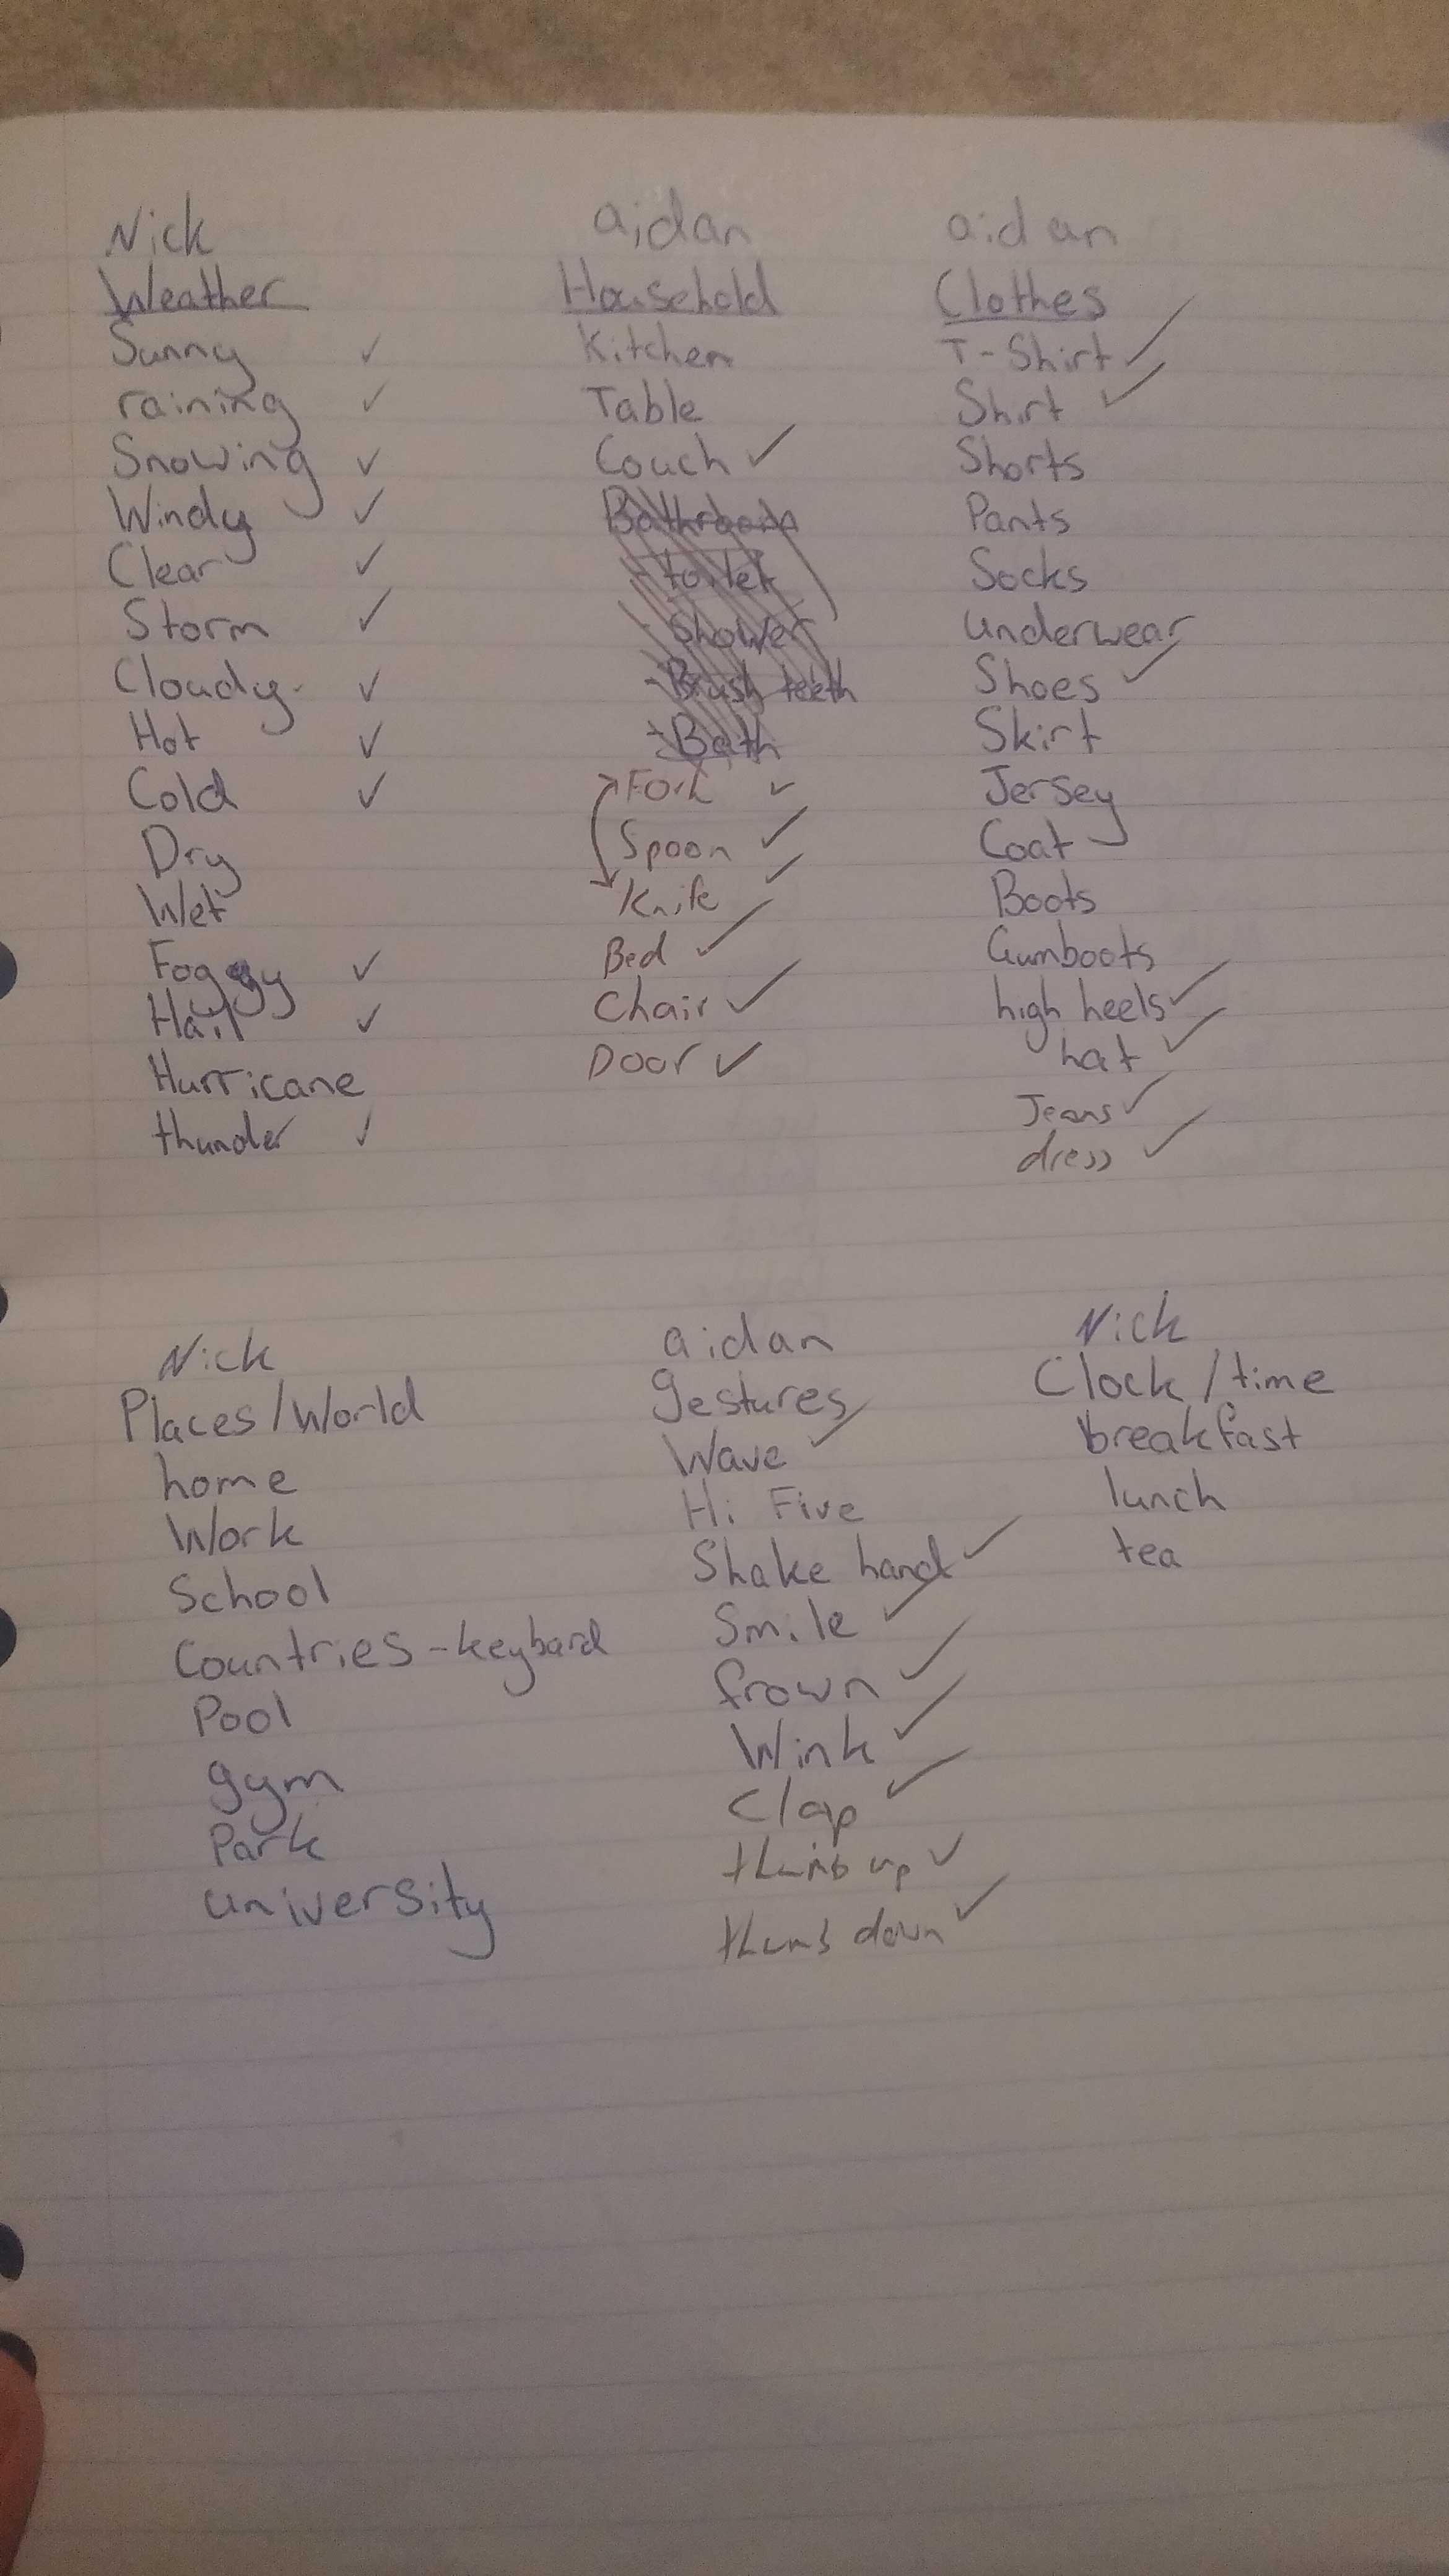 Nick
Weather
Sunny ✓
raining ✓
Snowing ✓
Windy ✓
Clear ✓
Storm ✓
Cloudy ✓
Hot ✓
Cold ✓
Dry
Wet
Foggy ✓
Hail ✓
Hurricane
thunder ✓
aidan
Household
Kitchen
Table
Couch ✓
Bathroom
- toilet
- Shower
- Brush teeth
- Bath
Fork ✓
Spoon ✓
Knife ✓
Bed ✓
Chair ✓
Door ✓
aidan
Clothes
T-Shirt ✓
Shirt ✓
Shorts
Pants
Socks
underwear
Shoes ✓
Skirt
Jersey
Coat
Boots
Gumboots
high heels ✓
hat ✓
Jeans ✓
dress ✓
Nick
Places/World
home
Work
School
Countries - keybard
Pool
gym
Park
university
aidan
gestures
Wave ✓
Hi Five
Shake hand ✓
Smile ✓
frown ✓
Wink ✓
Clap ✓
thumb up ✓
thumb down ✓
Nick
Clock/time
breakfast
lunch
tea